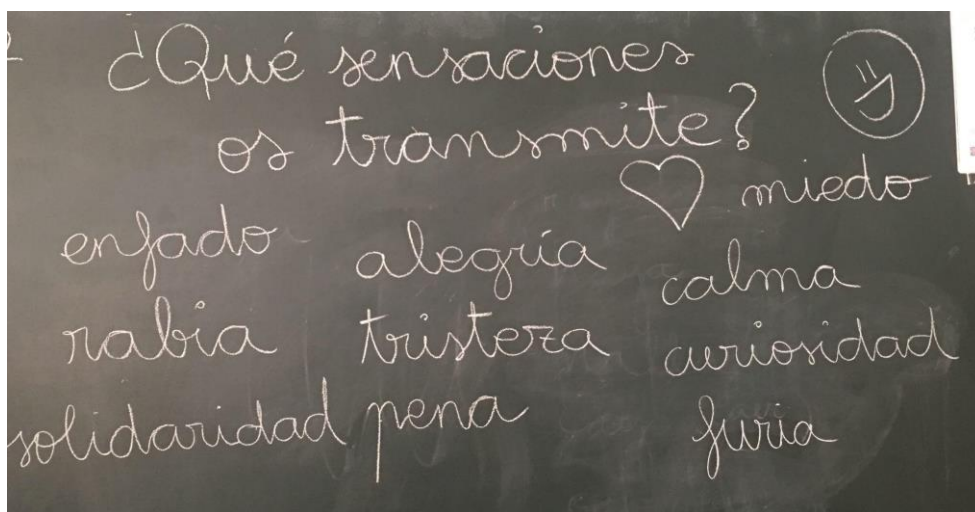 ¿Qué sensaciones
os transmite?
miedo
enfado alegría calma
rabia tristeza curiosidad
solidaridad pena furia